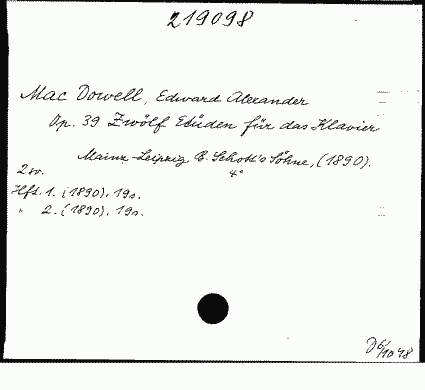 219098
Mac Dowell, Edward Alexander
Op. 39 Zwölf Etüden für das Klavier
Mainz-Leipzig B. Schott's Söhne, (1890).
2 sv. 4°
Hft. 1. (1890). 19s.
" 2. (1890). 19s.